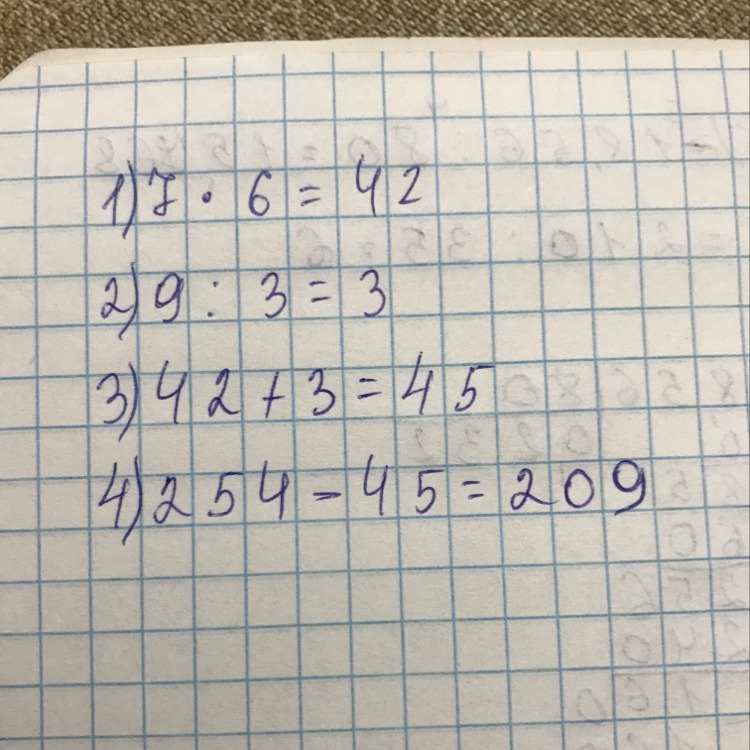 1) 7 · 6 = 42
2) 9 : 3 = 3
3) 42 + 3 = 45
4) 254 - 45 = 209